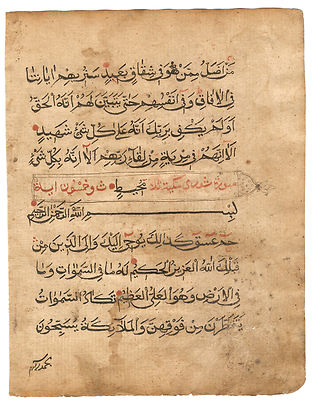 مَنْ اَضَلُّ مِمَّنْ هُوَ فِى شِقَاقٍ بَعِيدٍ سَنُرِيهِمْ ايَاتِنَا
فِى الْاٰفَاقِ وَفِى اَنْفُسِهِمْ حَتّٰى يَتَبَيَّنَ لَهُمْ اَنَّهُ الْحَقُّ
اَوَلَمْ يَكْفِ بِرَبِّكَ اَنَّهُ عَلٰى كُلِّ شَىْءٍ شَهِيدٌ
اَلَا اِنَّهُمْ فِى مِرْيَةٍ مِنْ لِقَاءِ رَبِّهِمْ اَلَا اِنَّهُ بِكُلِّ شَىْءٍ
سورة شورى مكية مُحِيطٌ وخمسون اية
بِسْمِ اللهِ الرَّحْمٰنِ الرَّحِيمِ
حٰمٓ عٓسٓقٓ كَذٰلِكَ يُوحِى اِلَيْكَ وَاِلَى الَّذِينَ مِنْ
قَبْلِكَ اللهُ الْعَزِيزُ الْحَكِيمُ لَهُ مَا فِى السَّمٰوَاتِ وَمَا
فِى الْاَرْضِ وَهُوَ الْعَلِىُّ الْعَظِيمُ تَكَادُ السَّمٰوَاتُ
يَتَفَطَّرْنَ مِنْ فَوْقِهِنَّ وَالْمَلَائِكَةُ يُسَبِّحُونَ
بحمد ربهم